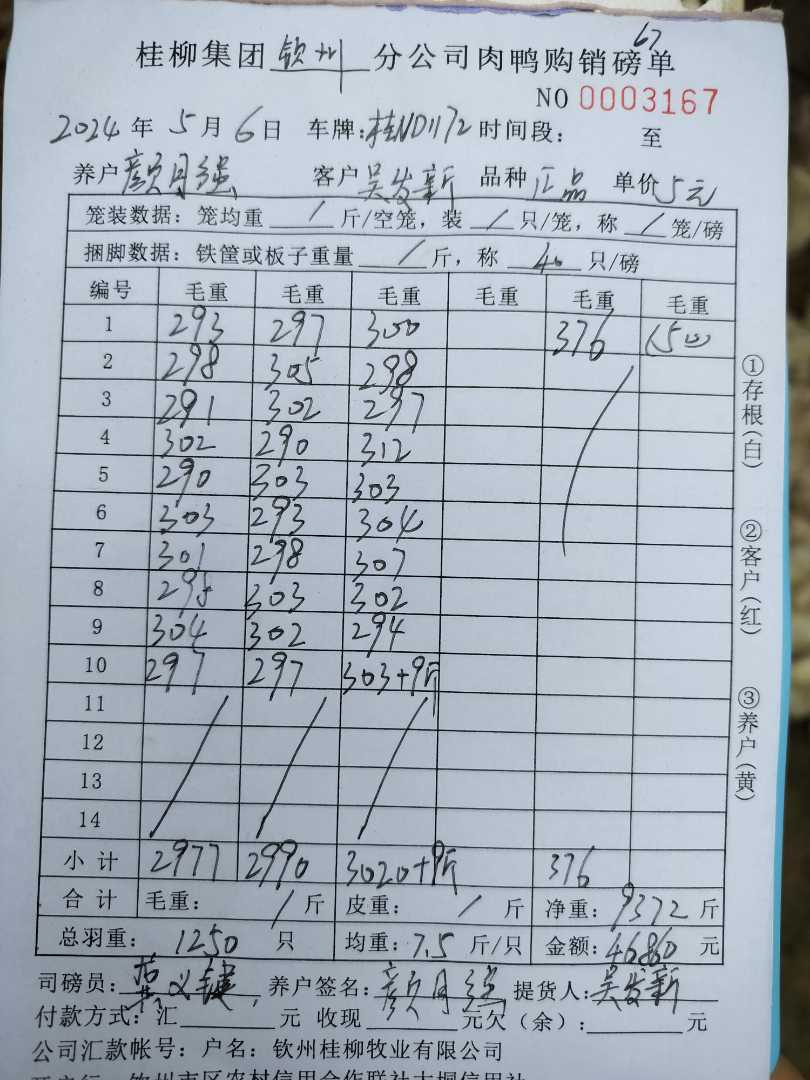 67
桂柳集团 钦州 分公司肉鸭购销磅单
NO 0003167
2024 年 5 月 6 日 车牌:桂ND1172 时间段: 至
养户 颜月强 客户 吴发新 品种 正品 单价 5元
笼装数据: 笼均重 / 斤/空笼, 装 / 只/笼, 称 / 笼/磅
捆脚数据: 铁筐或板子重量 / 斤, 称 40 只/磅
编号 毛重 毛重 毛重 毛重 毛重 毛重
1 293 297 300 376 (50)
2 298 305 298
3 291 302 297
4 302 290 312
5 290 303 303
6 303 293 304
7 301 298 307
8 298 303 302
9 304 302 294
10 297 297 303+9斤
11
12
13
14
小计 2977 2990 3020+9斤 376
合计 毛重: / 斤 皮重: / 斤 净重: 9372 斤
总羽重: 1250 只 均重: 7.5 斤/只 金额: 46860 元
司磅员: 养户签名: 颜月强 提货人: 吴发新
付款方式: 汇 元 收现 元欠(余): 元
公司汇款帐号: 户名: 钦州桂柳牧业有限公司
①存根(白)
②客户(红)
③养户(黄)